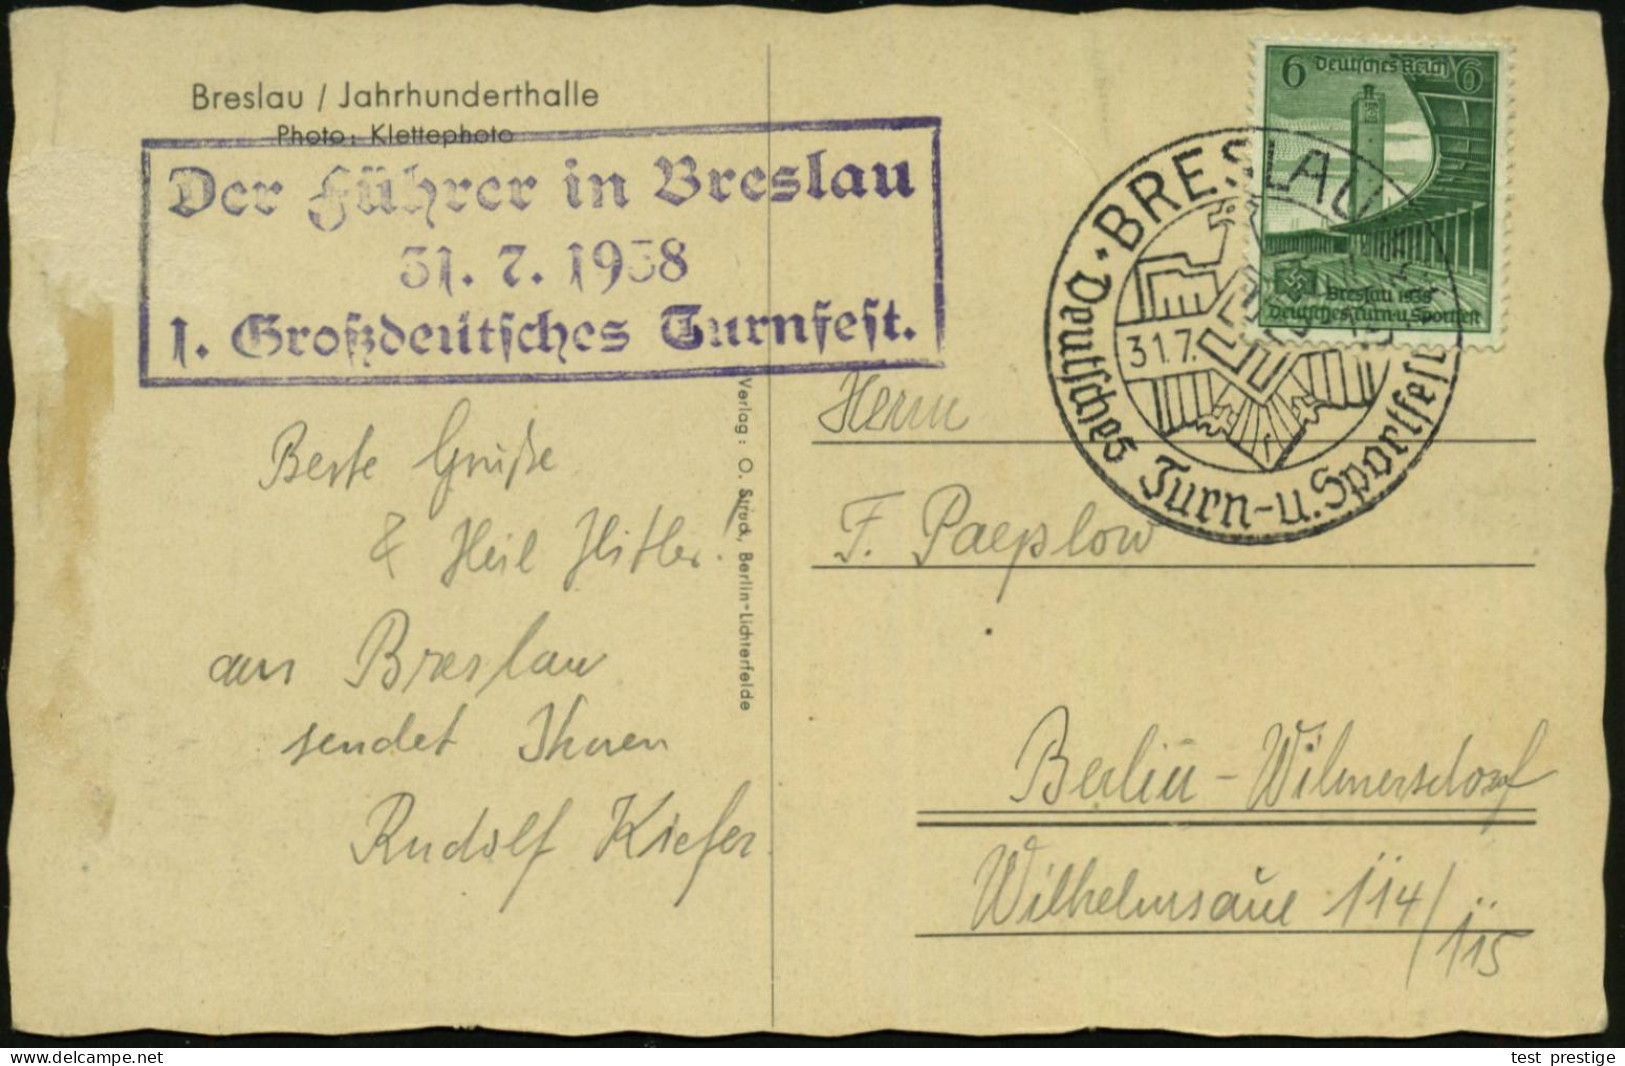 Breslau / Jahrhunderthalle
Photo: Klettephoto
Der Führer in Breslau
31. 7. 1938
1. Großdeutsches Turnfest.
Beste Grüße
& Heil Hitler.
aus Breslau
sendet Ihnen
Rudolf Kiefer
Verlag: O. Struck, Berlin-Lichterfelde
6 Deutsches Reich 6
Breslau 1938
Deutsches Turn-u. Sportfest
BRESLAU
31.7.
Deutsches Turn-u. Sportfest
Herrn
F. Paeplow
Berlin-Wilmersdorf
Wilhelmsaue 114/
115
test prestige
www.delcampe.net